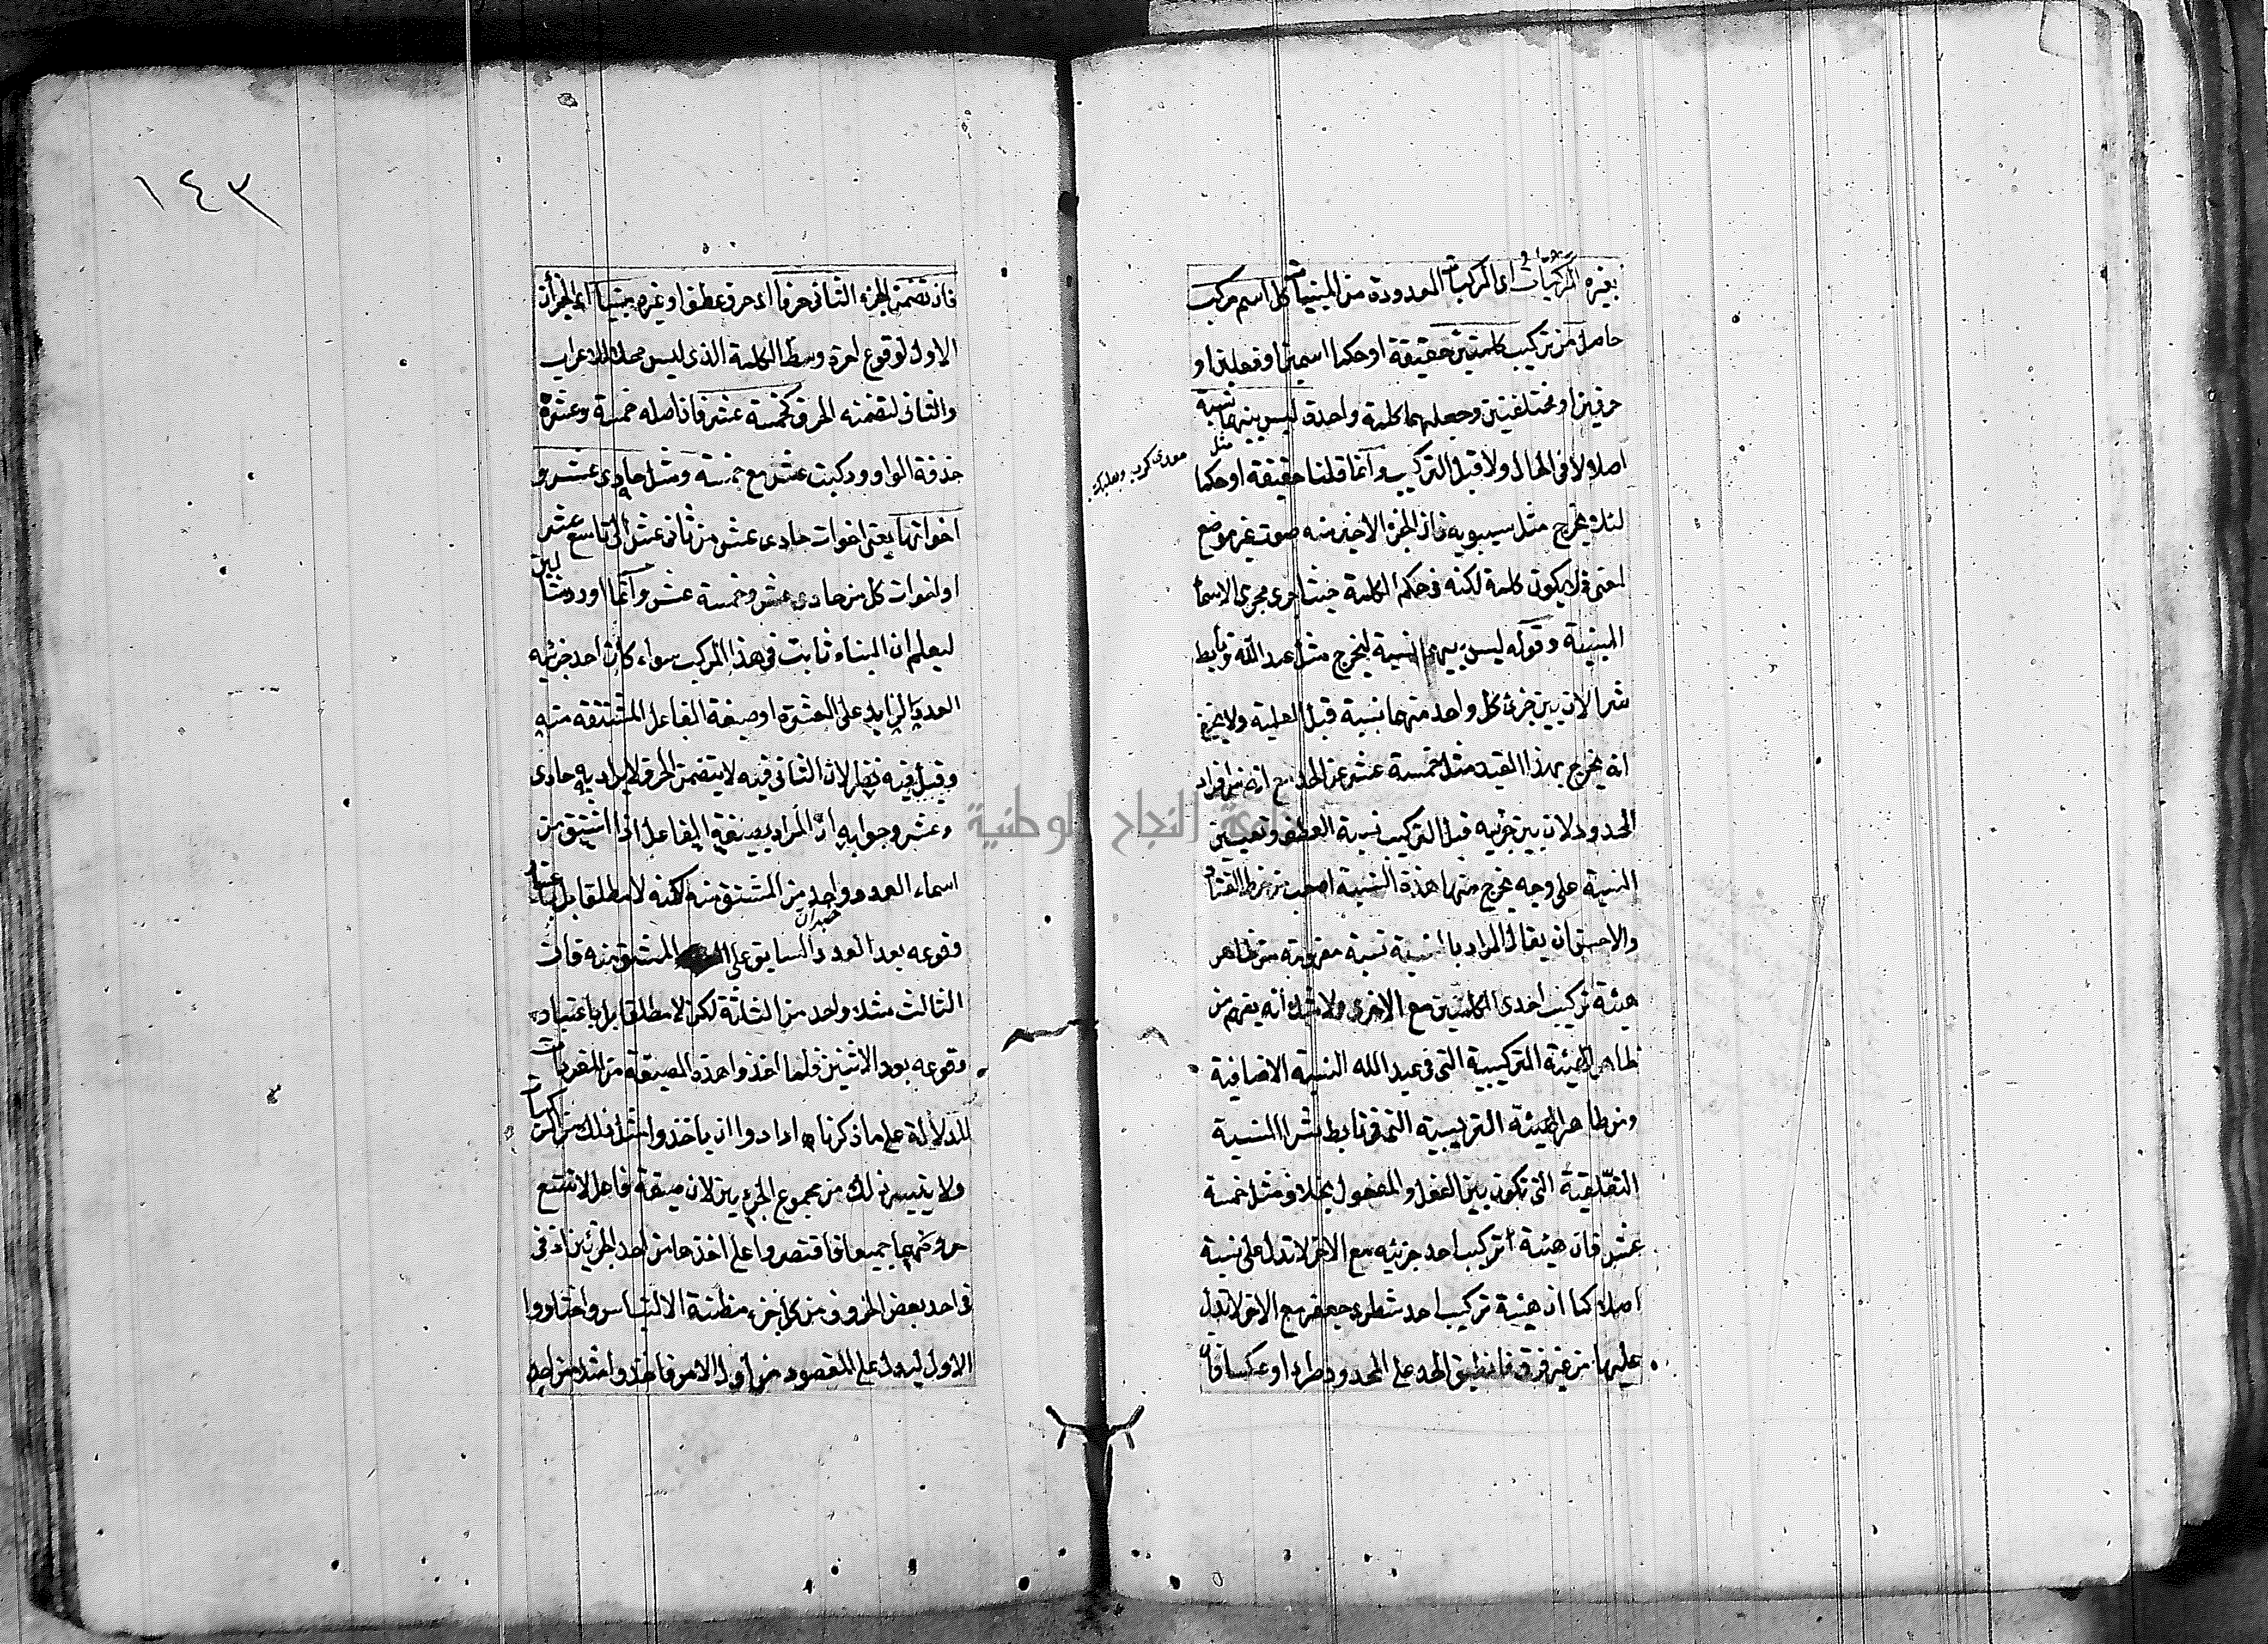 بغيره المركبات اى المركبات المعدودة من المبنيات كل اسم مركب
حاصل من تركيب كلمتين حقيقة او حكما اسمين او فعلين او
حرفين او مختلفتين وجعلهما كلمة واحدة ليس بينهما نسبة
اصلا لا فى الحال ولا قبل التركيب وانما قلنا حقيقة او حكما
مثل معدى كرب وبعلبك
لئلا يخرج مثل سيبويه فان الجزء الاخير منه صوت غير موضوع
لمعنى فلا يكون كلمة لكنه فى حكم الكلمة حيث اجرى مجرى الاسماء
المبنية وقوله ليس بينهما نسبة ليخرج مثل عبد الله وتأبط
شرا لان بين جزئى كل واحد منهما نسبة قبل العلمية ولا يخفى
انه يخرج بهذا القيد مثل خمسة عشر عن الحد مع انه من افراد
المحدود لان بين جزئيه قبل التركيب نسبة العطف وتعيين
النسبة على وجه يخرج منها هذه النسبة اصعب من خرط القتاد
والاحسن ان يقال المراد بالنسبة نسبة مفهومة من ظاهر
هيئة تركيب احدى الكلمتين مع الاخرى ولا شك أنه يفهم من
ظاهر الهيئة التركيبية التى فى عبد الله النسبة الاضافية
ومن ظاهر الهيئة التركيبية التى فى تابط شرا النسبة
التعلقية التى تكون بين الفعل والمفعول بخلاف مثل خمسة
عشر فان هيئة تركيب احد جزئيه مع الاخر لا تدل على نسبة
اصلا كما ان هيئة تركيب احد شطرى جعفر مع الاخر لا تدل
عليها من غير فرق فانطبق الحد على المحدود طردا وعكسا فان
١٤٣
فان تضمن الجزء الثانى حرفا اى حرف عطف او غيره بنيا اى الجزآن
الاول لوقوع اخره وسط الكلمة الذى ليس محلا للاعراب
والثانى لتضمنه الحرف كخمسة عشر فان اصله خمسة وعشرة
حذفة الواو وركبت عشر مع خمسة ومثل حادى عشر و
اخواتها يعنى اخوات حادى عشر من ثانى عشر الى تاسع عشر
او اخوات كل من حادى عشر وخمسة عشر وانما اورد مثالين
ليعلم ان البناء ثابت فى هذا المركب سواء كان احد جزئيه
العدد الزايد على العشرة او صيغة الفاعل المشتقة منه
وقيل فيه نظر لان الثانى فيه لا يتضمن الحرف لا يراد به حادى
وعشر وجوابه ان المراد بصيغة الفاعل اذا اشتق من
اسماء العدد واحد من المشتق منه لكنه لا مطلقا بل باعتبار
وقوعه بعد العدد السابق على المشتق منه فان
الثالث مثلا واحد من الثلثة لكن لا مطلقا بل باعتبار
وقوعه بعد الاثنين فلما اخذوا هذه الصيغة من المفردات
للدلالة على ما ذكرنا ارادوا ان ياخذوا مثل ذلك من المركبات
ولا يتيسر ذلك من مجموع الجزءين لان صيغة فاعل لا تسع
حروفهما جميعا فاقتصروا على اخذها من احد الجزئين اذ فى
فى احد بعض الحروف من كل جزء مظنة الالتباس واختاروا
الاول ليدل على المقصود من اول الامر فاخذوا مثلا من احد